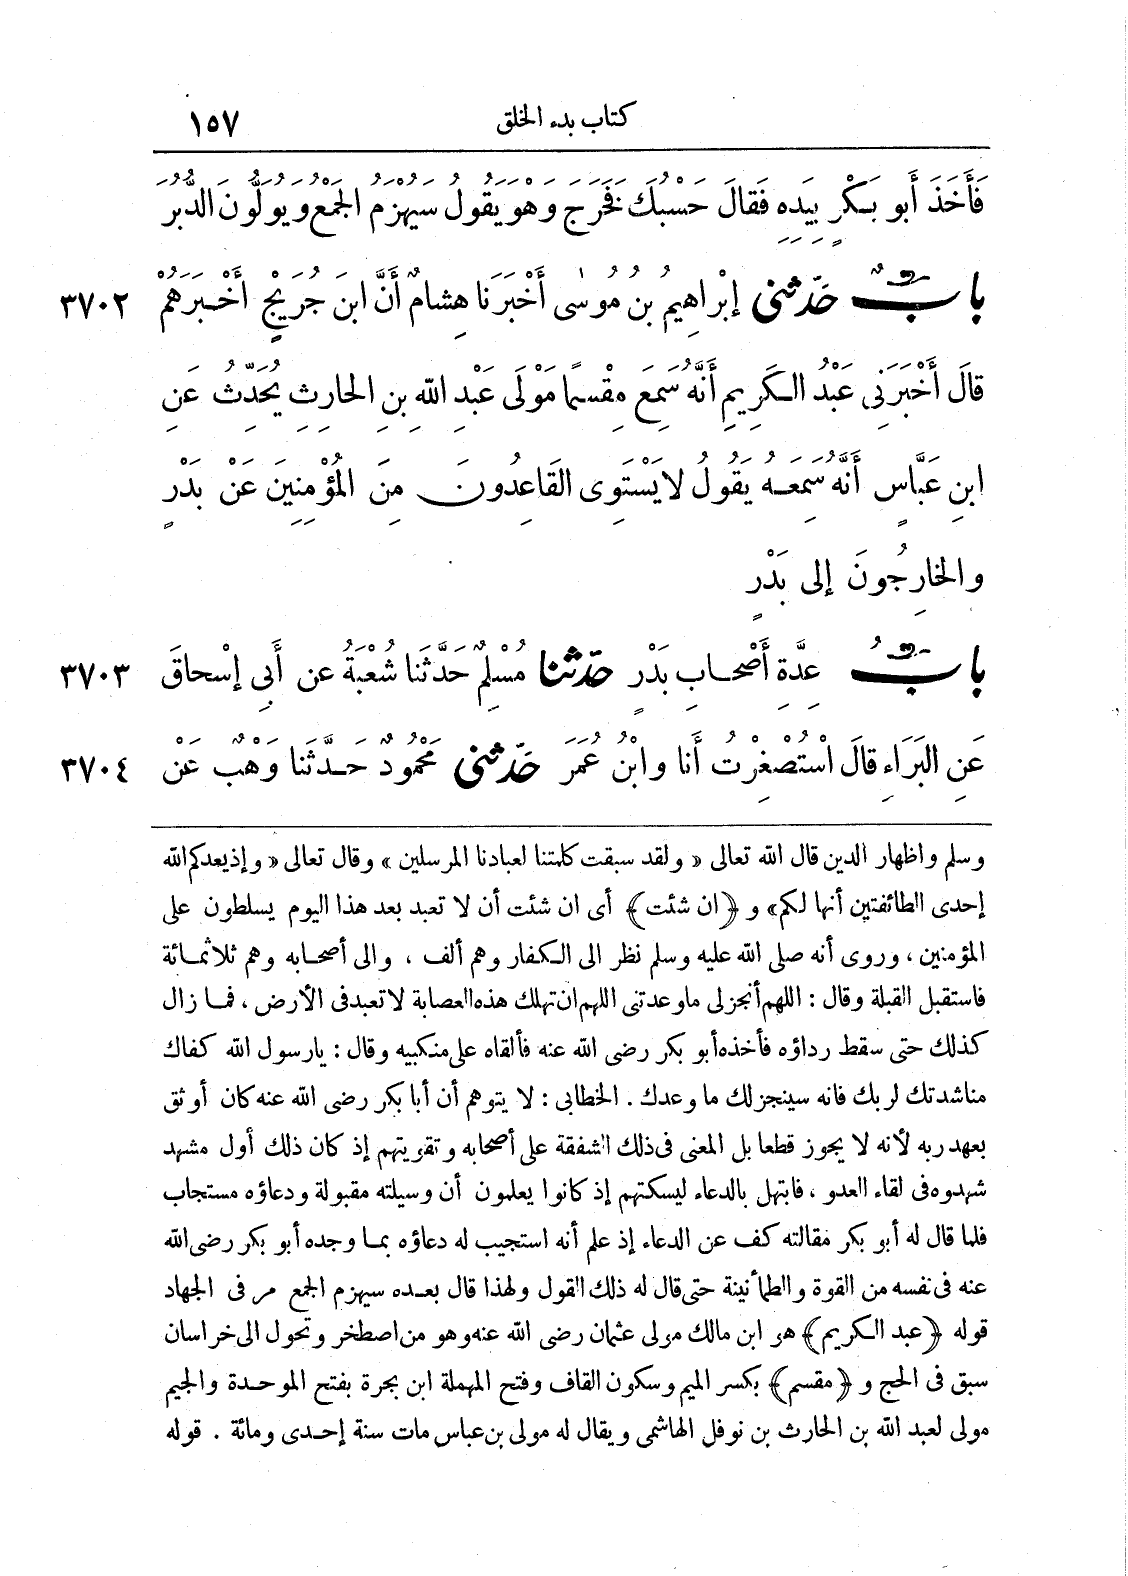 كتاب بدء الخلق ١٥٧
فَأَخَذَ أَبو بَكْرٍ بِيَدِهِ فَقالَ حَسْبُكَ فَخَرَجَ وَهْوَ يَقُولُ سَيُهْزَمُ الْجَمْعُ وَيُوَلُّونَ الدُّبُرَ
بابٌ حَدَّثَنِى إبْراهِيمُ بن مُوسٰى أَخْبَرَنا هِشامٌ أَنَّ ابنَ جُرَيْجٍ أَخْبَرَهُمْ ٣٧٠٢
قالَ أَخْبَرَنِى عَبْدُ الكَرِيمِ أَنَّهُ سَمِعَ مِقْسَمًا مَوْلَى عَبْدِ اللهِ بنِ الحارِثِ يُحَدِّثُ عَنِ
ابنِ عَبَّاسٍ أَنَّهُ سَمِعَهُ يَقُولُ لا يَسْتَوِى القَاعِدُونَ مِنَ الْمُؤْمِنِينَ عَنْ بَدْرٍ
والخارِجُونَ إلى بَدْرٍ
بابُ عِدَّةِ أَصْحابِ بَدْرٍ حدّثنا مُسْلِمٌ حَدَّثَنا شُعْبَةُ عن أَبِى إسْحاقَ ٣٧٠٣
عَنِ البَرَاءِ قالَ اسْتُصْغِرْتُ أَنا وابْنُ عُمَرَ حَدَّثَنِى مَحْمُودٌ حَدَّثَنا وَهْبٌ عَنْ ٣٧٠٤
وسلم واظهار الدين قال الله تعالى « ولقد سبقت كلمتنا لعبادنا المرسلين » وقال تعالى « وإذ يعدكم الله
إحدى الطائفتين أنها لكم» و ﴿ان شئت﴾ أى ان شئت أن لا تعبد بعد هذا اليوم يسلطون على
المؤمنين ، وروى أنه صلى الله عليه وسلم نظر الى الكفار وهم ألف ، والى أصحابه وهم ثلاثمائة
فاستقبل القبلة وقال : اللهم أنجز لى ما وعدتنى اللهم ان تهلك هذه العصابة لا تعبد فى الأرض ، فما زال
كذلك حتى سقط رداؤه فأخذه أبو بكر رضى الله عنه فألقاه على منكبيه وقال : يارسول الله كفاك
مناشدتك لربك فانه سينجز لك ما وعدك . الخطابى : لا يتوهم أن أبا بكر رضى الله عنه كان أوثق
بعهد ربه لأنه لا يجوز قطعا بل المعنى فى ذلك الشفقة على أصحابه وتقويتهم إذ كان ذلك أول مشهد
شهدوه فى لقاء العدو ، فابتهل بالدعاء ليسكتهم إذ كانوا يعلمون أن وسيلته مقبولة ودعاؤه مستجاب
فلما قال له أبو بكر مقالته كف عن الدعاء إذ علم أنه استجيب له دعاؤه بما وجده أبو بكر رضى الله
عنه فى نفسه من القوة والطمأنينة حتى قال له ذلك القول ولهذا قال بعده سيهزم الجمع مر فى الجهاد
قوله ﴿عبد الكريم﴾ هو ابن مالك مولى عثمان رضى الله عنه وهو من اصطخر وتحول الى خراسان
سبق فى الحج و ﴿مقسم﴾ بكسر الميم وسكون القاف وفتح المهملة ابن بجرة بفتح الموحدة والجيم
مولى لعبد الله بن الحارث بن نوفل الهاشمى ويقال له مولى بن عباس مات سنة إحدى ومائة . قوله